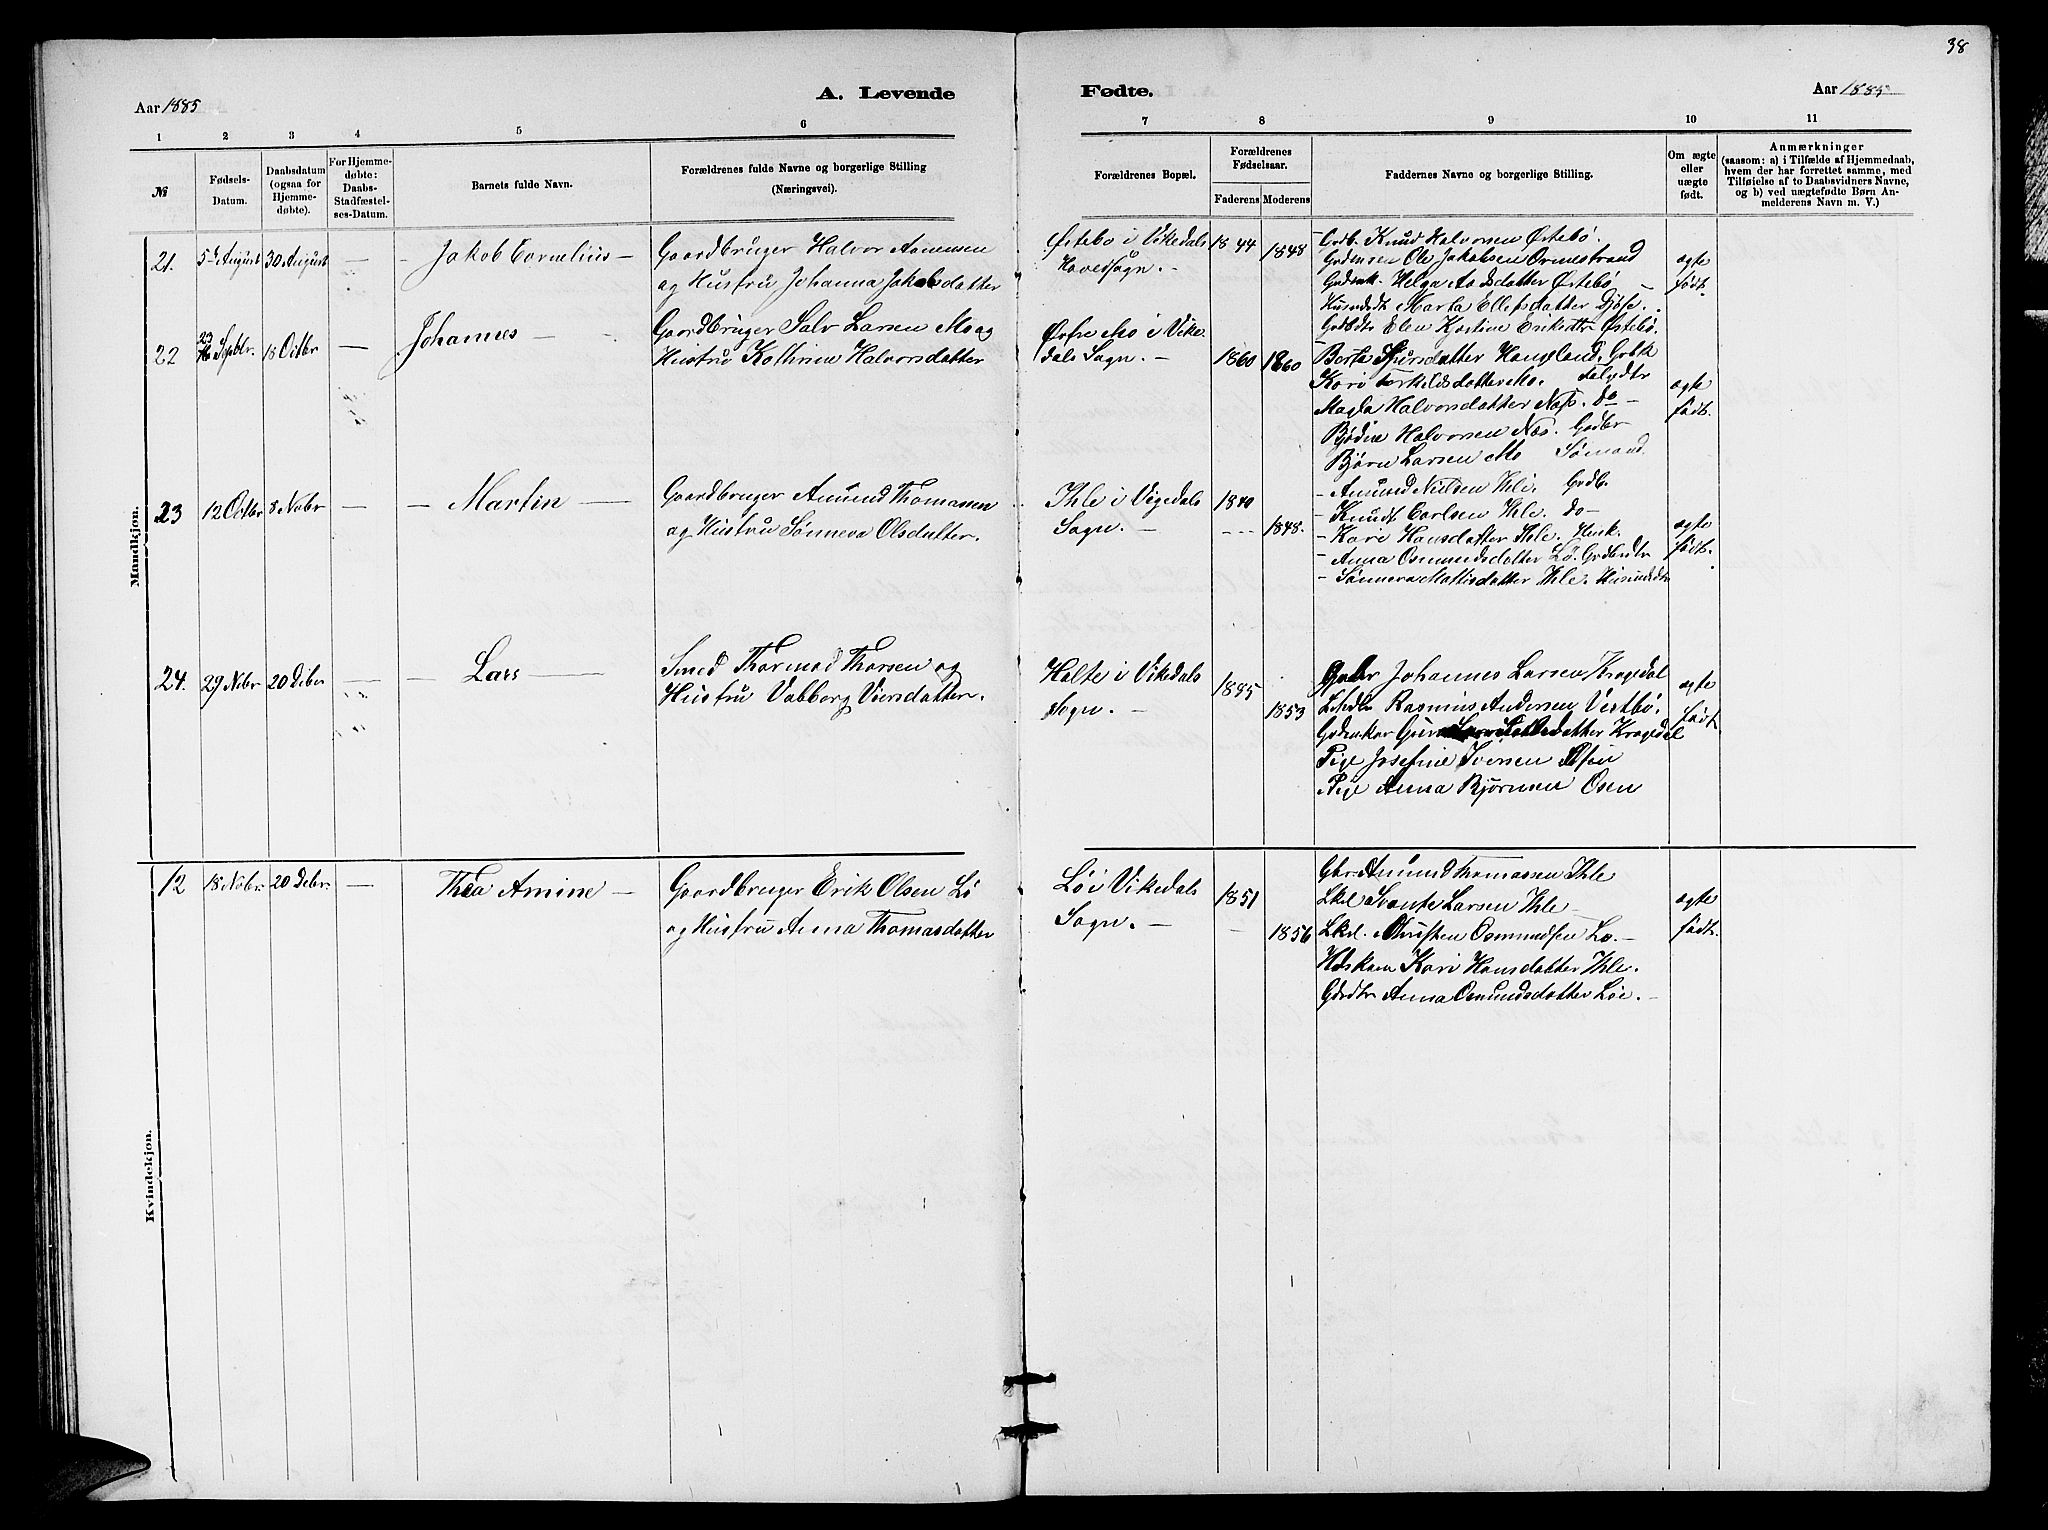 38
Aar 1885
A. Levende
Fødte.
Aar 1885
1 2 3 4 5 6 7 8 9 10 11
№
Fødsels-
Datum.
Daabsdatum
(ogsaa for
Hjemme-
døbte).
For Hjemme-
døbte:
Daabs-
Stadfæstel-
ses-Datum.
Barnets fulde Navn.
Forældrenes fulde Navne og borgerlige Stilling
(Næringsvei).
Forældrenes Bopæl.
Forældrenes
Fødselsaar.
Faderens Moderens
Faddernes Navne og borgerlige Stilling.
Om ægte
eller
uægte
født.
Anmærkninger
(saasom: a) i Tilfælde af Hjemmedaab,
hvem der har forrettet samme, med
Tilføielse af to Daabsvidners Navne,
og b) ved uægtefødte Børn An-
melderens Navn m. V.)
Mandkjøn.
21. 5te August 30 August — - Jakob Cornelius -
Gaardbruger Halvor Asmensen
og Hustru Johanna Jakobsdatter
Østebø i Vikedals
Hovedsogn. -
1844 1848
- Grdb. Knud Halvorsen Østebø.
Ole Jakobsen Ormestrand
Helga Asdsdatter Østebø
Marta Ellefsdatter
Elen Kristine Eriksdtr Østebø.
ægte
født.
22 23 Septbr. 18 Octbr — Johannes -
Gaardbruger Salv Larsen Mo og
Hustru Kathrine Halvorsdatter
Øvre Mo i Vike
dals Sogn. -
1860 1860
Berta Sjursdatter Haugland. Grbk
Kari Torkildsdatter Mo.
Magla Halvorsdatter Næs. do -
Halvorsen Næs. Grdbr
Bjørn Larsen Mo Sømand.
ægte
født.
23 12 Octbr 8 Nobr — - Martin -
Gaardbruger Amund Thomassen
og Hustru Sønneva Olsdatter.
Ihle i Vigedals
Sogn. -
1840
--- 1848.
- Amund Nielsen Ihle. Grdb.
- Knudt Carlsen Ihle. do -
- Kari Hansdatter Ihle. Husk.
- Anna Osmundsdatter Lø. Grdbrdtr
- Sønneva Mattisdatter Ihle. Husmdtr
ægte
født.
24. 29 Nobr 20 Deber — - Lars -
Smed Thormod Thorsen og
Hustru Valborg Viersdatter.
Helte i Vikedals
Sogn. -
1885 1853
Johannes Larsen Kragedal
Rasmus Andersen Vestbø.
Kragedal
Pige Josefine Iversen
Pige Anna Bjørnsen Osen
ægte
født
Kvindekjøn.
12 18 Nobr. 20 Debr. — Thea Amine -
Gaardbruger Erik Olsen Lø
og Hustru Anna Thomasdatter
Lø i Vikedals
Sogn. -
1851
- 1856
Gbr Amund Thomassen Ihle
Lkrl Svante Larsen Ihle -
Lkrl. Christen Osmundsen Lø. -
Hdskone Kari Hansdatter Ihle.
Gbrdtr Anna Osmundsdatter Løe. -
ægte
født.